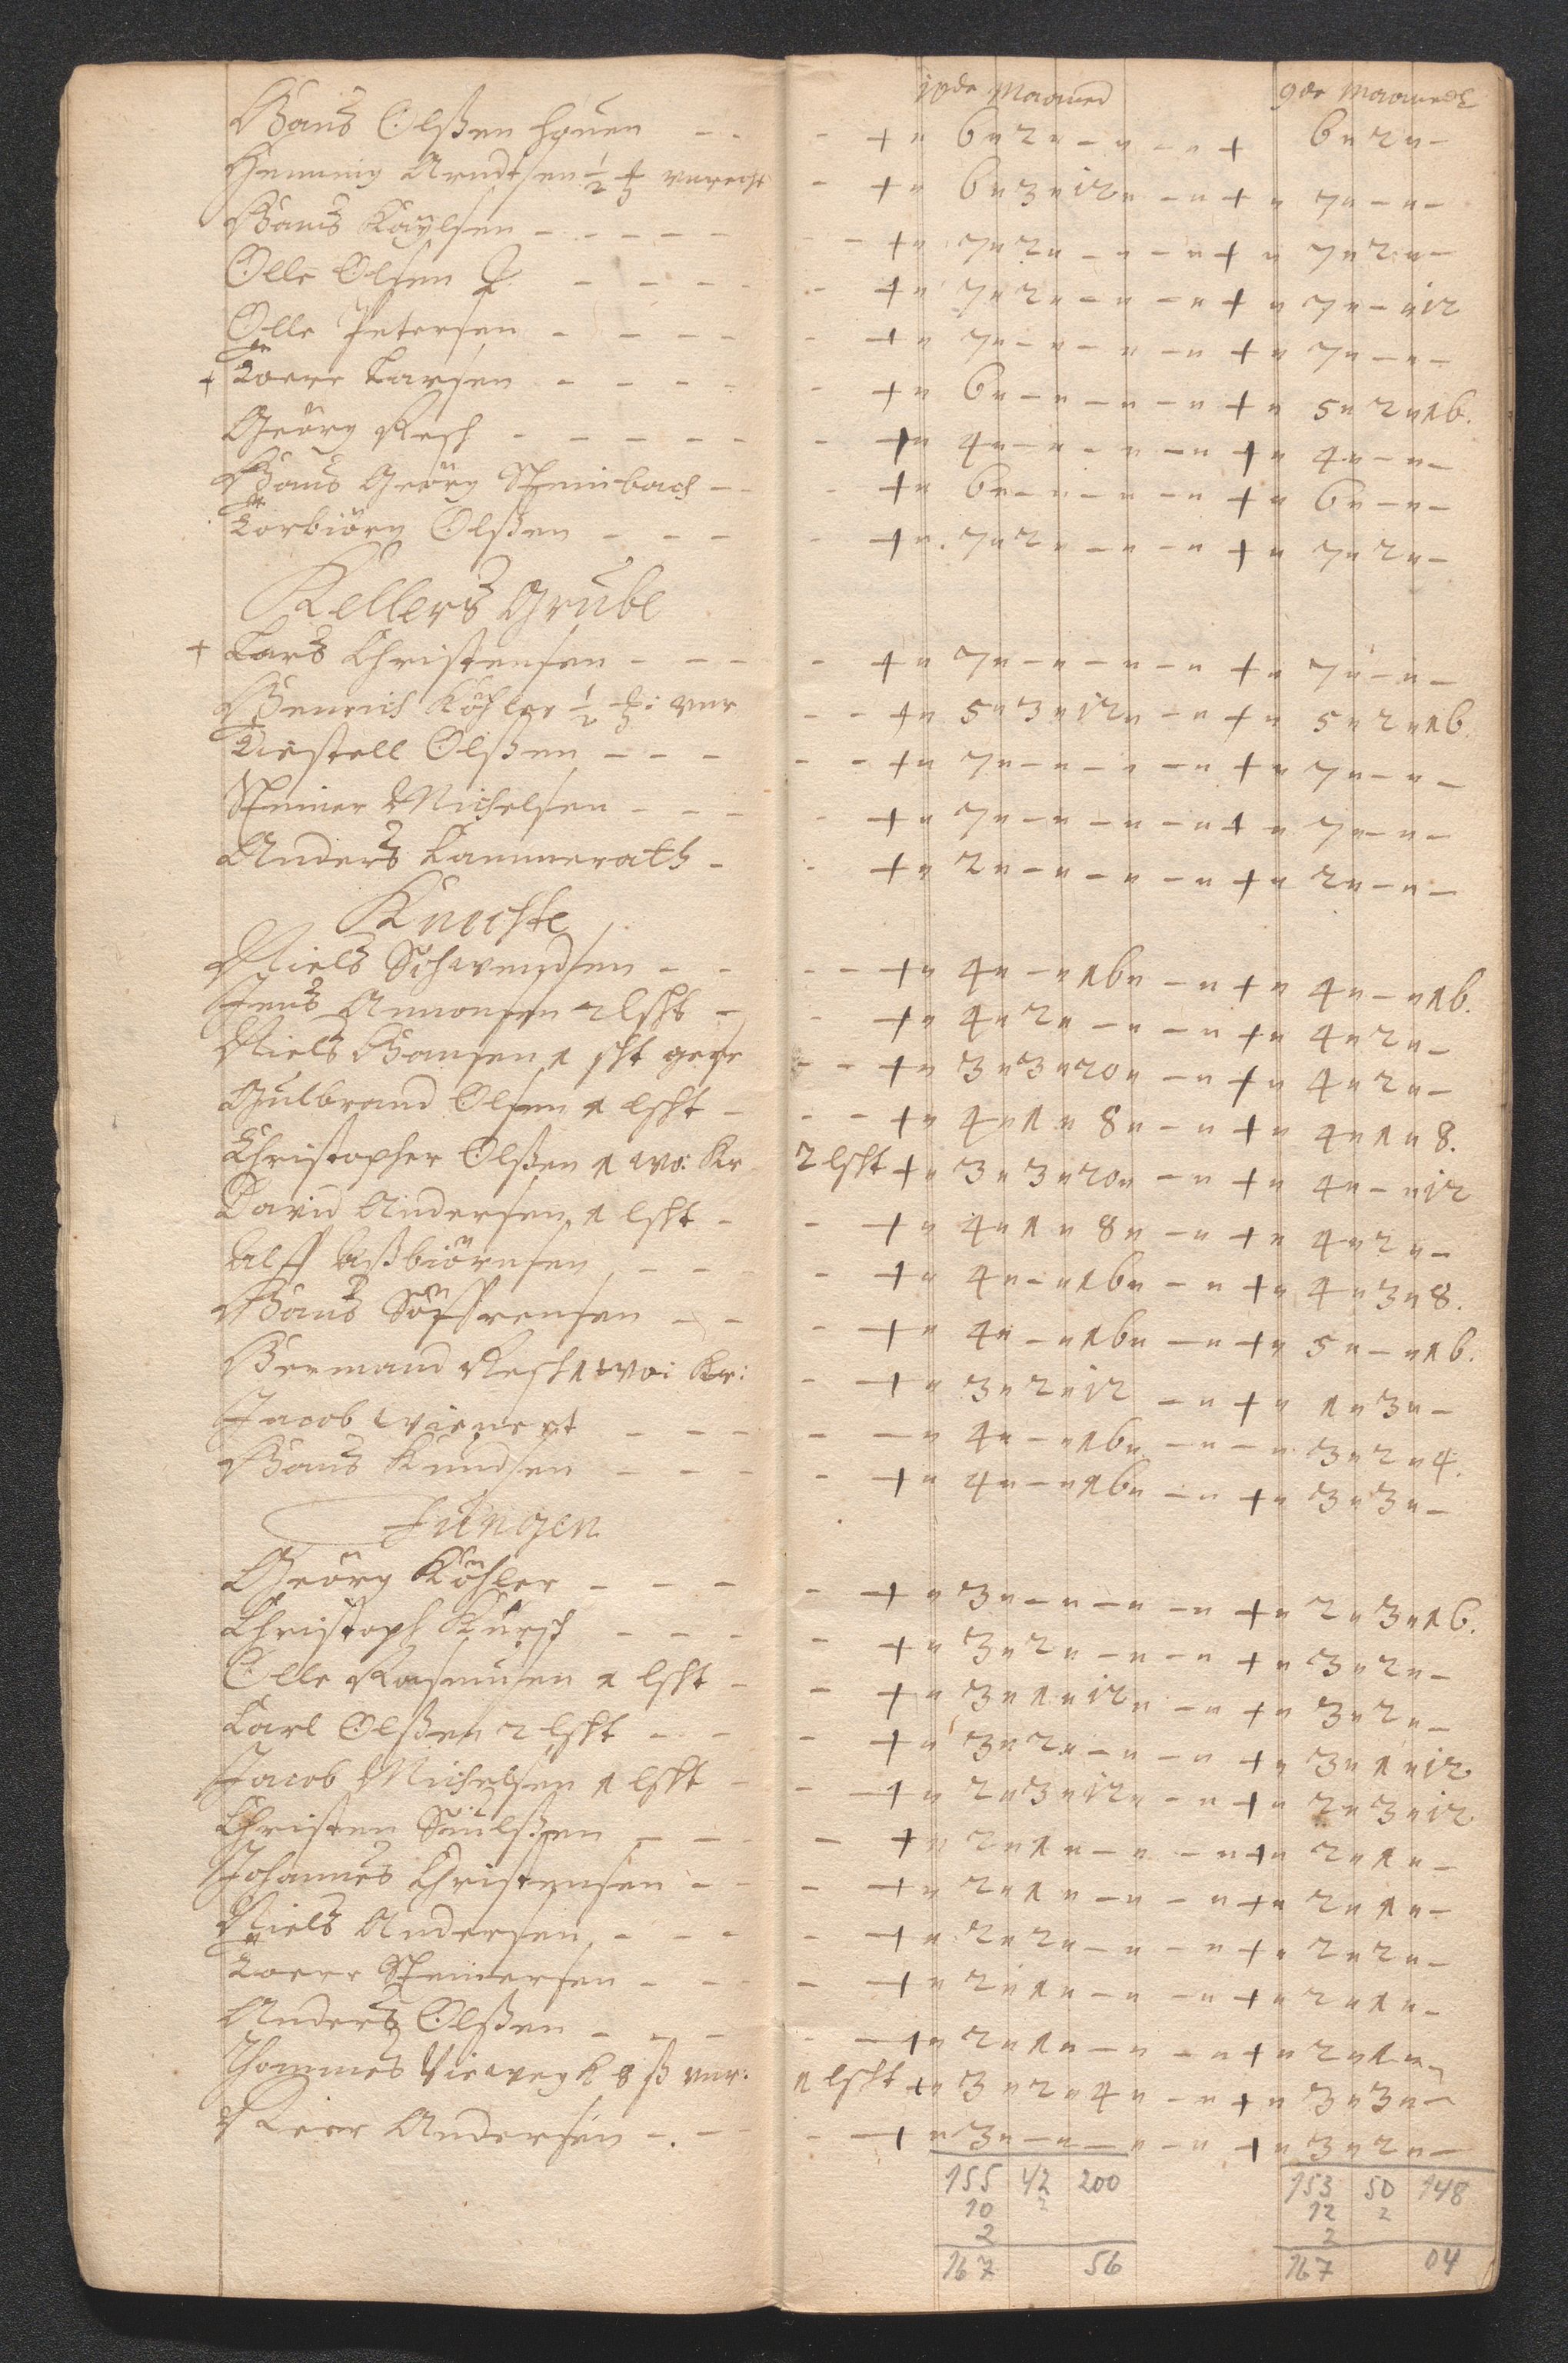 10de Maaned 9de Maaned
Hans Olßen houen - - - + " 6 " 2 " - " - " + 6 " 2 " -
Henning Arndtsen ½ verecht - + " 6 " 3 " 12 " - " + " 7 " - " -
Hans Kaylsen - - - - - - - + " 7 " 2 " - " - " + " 7 " 2 " -
Olle Olsen - - - - + " 7 " 2 " - " - " + " 7 " - " 12
Olle Petersen - - - - - + " 7 " - " - " - " + " 7 " - " -
+ Toere Larsen - - - - - + " 6 " - " - " - " + " 5 " 2 " 16.
Georg Resch - - - - - - + " 4 " - " - " - " + " 4 " - " -
Hans Georg Steinbach - - + " 6 " - " - " - " + " 6 " - " -
Torbiörn Olßen - - - - + " 7 " 2 " - " - " + " 7 " 2 " -
Kellers Grube
+ Lars Christensen - - - - + " 7 " - " - " - " + " 7 " - " -
Henrich Köhler ½ ver - - + " 5 " 3 " 12 " - " + " 5 " 2 " 16.
Kiestell Olßen - - - - - + " 7 " - " - " - " + " 7 " - " -
Steiner Michelsen - - - - + " 7 " - " - " - " + " 7 " - " -
Anders Cammerath - - + " 2 " - " - " - " + " 2 " - " -
Knechte
Niels Schwendsen - - - - + " 4 " - " 16 " - " + " 4 " - " 16.
Jens Amonsen 2 lscht - - + " 4 " 2 " - " - " + " 4 " 2 " -
Niels Hansen 1 scht gese - - + " 3 " 3 " 20 " - " + " 4 " 2 " -
Gulbrand Olsen 1 lscht - - - + " 4 " 1 " 8 " - " + " 4 " 1 " 8.
Christopher Olßen 1 wo: Kr 2 lscht + " 3 " 3 " 20 " - " + " 4 " - " 12
David Andersen 1 lscht - - + " 4 " 1 " 8 " - " + " 4 " 2 " -
Alff Aßbiörnsen - - - - + " 4 " - " 16 " - " + " 4 " 3 " 8.
Hans Söffrensen - - - + " 4 " - " 16 " - " + " 5 " - " 16.
Hermand Resch 1 wo: Kr: - + " 3 " 2 " 12 - " + " 1 " 3 " -
Jacob Wienert - - - - - " 4 " - " 16 " - " - " 3 " 2 " 4.
Hans Knudsen - - - - + " 4 " - " 16 " - " + " 3 " 3 " -
Jungen
Georg Köhler - - - - + " 3 " - " - " - " + " 2 " 3 " 16.
Christoph Kursch - - - - + " 3 " 2 " - " - " + " 3 " 2 " -
Olle Rasmusen 1 lscht - - + " 3 " 1 " 12 " - " + " 3 " 2 " -
Carl Olßen 2 lscht - - - + " 3 " 2 " - " - " + " 3 " 1 " 12
Jacob Michelsen 1 lscht - - + " 2 " 3 " 12 " - " + " 2 " 3 " 12
Christen - - - - + " 2 " 1 " - " - " + " 2 " 1 " -
Johannes Christensen - - - + " 2 " 1 " - " - " + " 2 " 1 " -
Niels Andersen - - - - + " 2 " 2 " - " - " + " 2 " 2 " -
Toere Steinersen - - - - + " 2 " 1 " - " - " + " 2 " 1 " -
Anders Olßen - - - - + " 2 " 1 " - " - " + " 2 " 1 " -
Thommes Vieweg 8 ß ver: 1 lscht + " 3 " 2 " 4 " - " + " 3 " 3 " -
Andersen - - - + " 3 " - " - " - " + " 3 " 2 " -
155 42 200 153 50 148
10 2 12 2
2 2
167 56 167 04